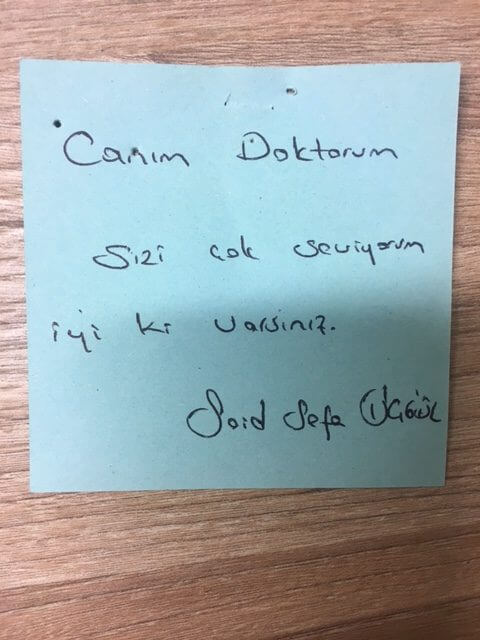 Canım Doktorum
Sizi çok seviyorum
iyi ki varsınız.
Said Sefa